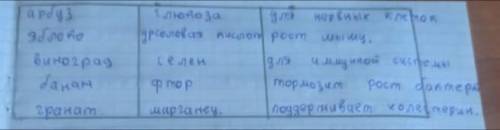 арбуз глюкоза для нервных клеток
яблоко урсоловая кислот рост мышц.
виноград селен для имунной системы
банан фтор тормозит рост бактери
гранат. марганец. поддерживает холестерин.